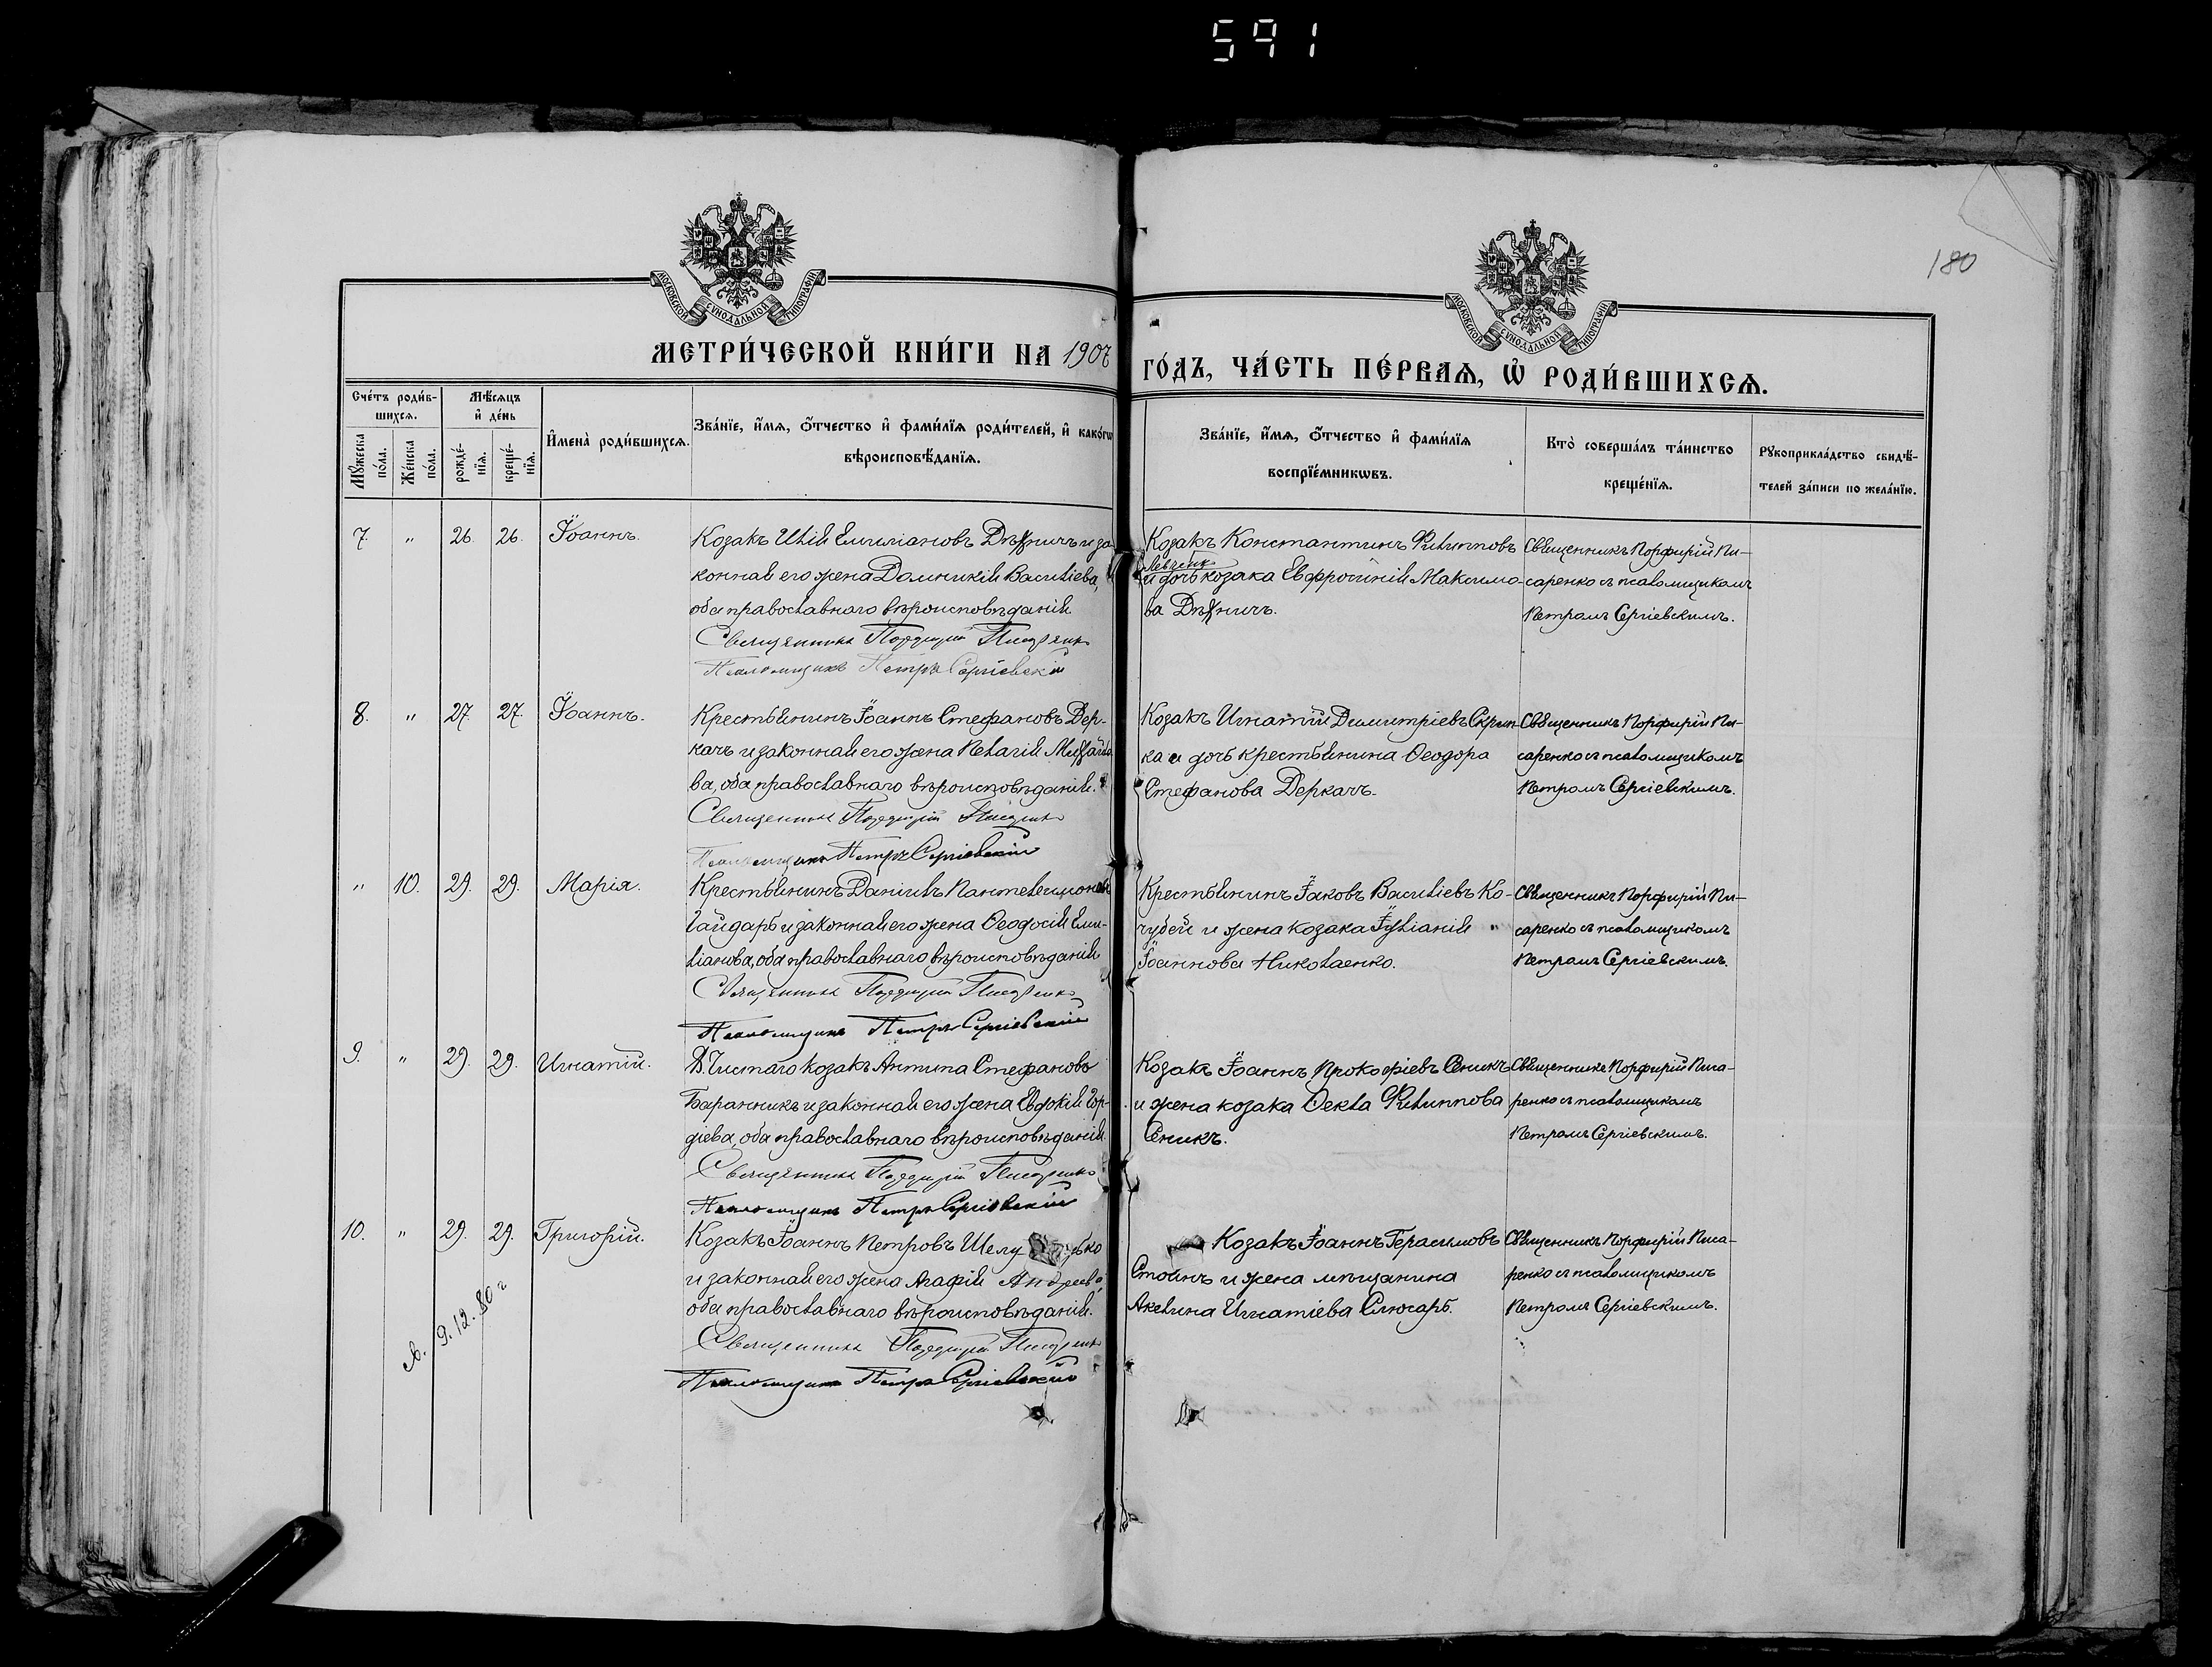 591
180
МОСКОВСКОЙ СѴНОДАЛЬНОЙ ТИПОГРАФІИ
МОСКОВСКОЙ СѴНОДАЛЬНОЙ ТИПОГРАФІИ
МЕТРИ́ЧЕСКОЙ КНИ́ГИ НА 1907
ГО́ДЪ, ЧА́СТЬ ПЕ́РВАѦ, Ѡ҆ РОДИ́ВШИХСѦ.
Сче́тъ роди́в-
шихсѧ.
Мѣ́сѧцъ
и҆ де́нь
Мꙋ́жеска
по́ла.
Же́нска
по́ла.
рожде́-
нїѧ.
креще́-
нїѧ.
И҆мена̀ роди́вшихсѧ.
Зва́нїе, и҆́мѧ, ѻ҆́тчество и҆ фами́лїѧ роди́телей, и҆ како́гѡ
вѣроисповѣ́данїѧ.
Зва́нїе, и҆́мѧ, ѻ҆́тчество и҆ фами́лїѧ
воспрїе́мникѡвъ.
Кто̀ соверша́лъ та́инство
креще́нїѧ.
Рꙋкоприкла́дство свидѣ́-
телей за́писи по жела́нїю.
7. " 26. 26. Іоаннъ.
Козакъ Илія Емиліановъ Дѣхничъ и за-
конная его жена Домникія Василіева,
оба православнаго вѣроисповѣданія
Священникъ Порфирій Писаренко
Псаломщикъ Петръ Сергіевскій
Козакъ Константинъ Филипповъ
и дочь козака Евфросинія Максимо-
ва Дѣхничъ.
Священникъ Порфирій Пи-
саренко съ псаломщикомъ
Петромъ Сергіевскимъ.
8. " 27. 27. Іоаннъ.
Крестьянинъ Іоаннъ Стефановъ Дер-
качъ и законная его жена Пелагія Михайло
ва, оба православнаго вѣроисповѣданія.
Священникъ Порфирій Писаренко
Псаломщикъ Петръ Сергіевскій
Козакъ Игнатій Димитріевъ Скрип-
ка и дочь крестьянина Ѳеодора
Стефанова Деркачъ.
Священникъ Порфирій Пи-
саренко съ псаломщикомъ
Петромъ Сергіевскимъ.
" 10. 29. 29. Марія.
Крестьянинъ Даніилъ Пантелеимоновъ
Гайдарь и законная его жена Ѳеодосія Еми-
ліанова, оба православнаго вѣроисповѣданія
Священникъ Порфирій Писаренко
Псаломщикъ Петръ Сергіевскій
Крестьянинъ Іаковъ Василіевъ Ко-
чубей и жена козака Іуліанія "
Іоаннова Николаенко.
Священникъ Порфирій Пи-
саренко съ псаломщикомъ
Петромъ Сергіевскимъ.
9. " 29. 29. Игнатій.
Д. Чистаго козакъ Антипа Стефановъ
Баранникъ и законная его жена Евдокія Гор-
діева, оба православнаго вѣроисповѣданія.
Священникъ Порфирій Писаренко
Псаломщикъ Петръ Сергіевскій
Козакъ Іоаннъ Прокофіевъ Сеникъ
и жена козака Ѳекла Филиппова
Сеникъ.
Священникъ Порфирій Писа-
ренко съ псаломщикомъ
Петромъ Сергіевскимъ.
10. " 29. 29. Григорій.
Козакъ Іоаннъ Петровъ
и законная его жена Агафія Андреева,
оба православнаго вѣроисповѣданія.
Священникъ Порфирій Писаренко
Псаломщикъ Петръ Сергіевскій
Козакъ Іоаннъ Герасимовъ
Стоянъ и жена мѣщанина
Акелина Игнатіева Слюсарь.
Священникъ Порфирій Писа-
ренко съ псаломщикомъ
Петромъ Сергіевскимъ.
9.12.80 г